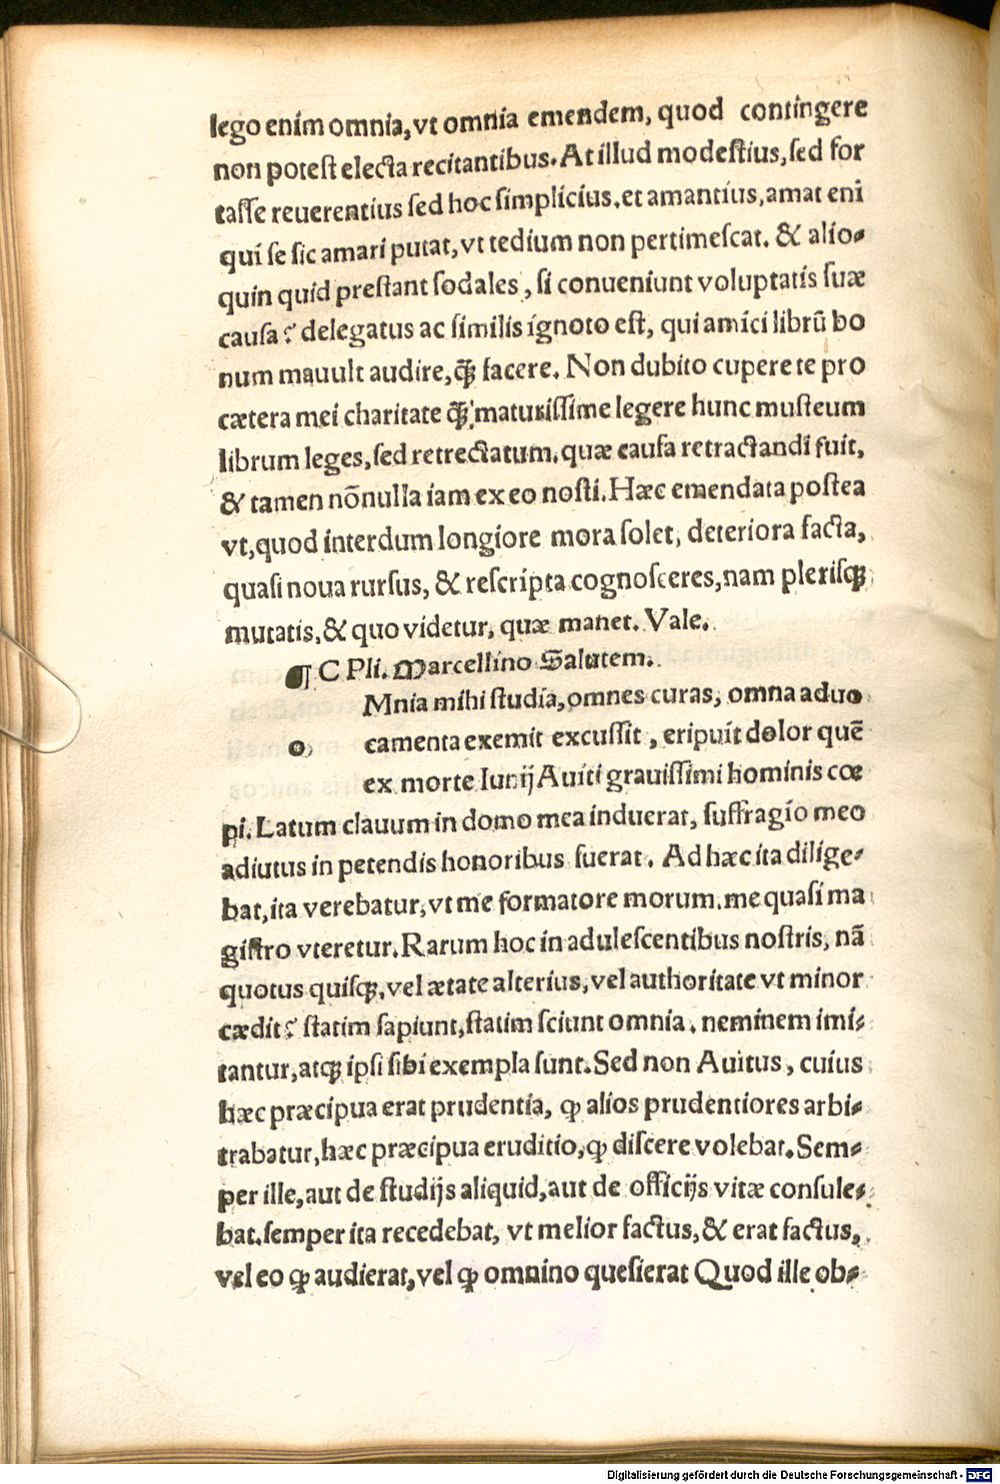 lego enim omnia, vt omnia emendem, quod contingere
non potest electa recitantibus. At illud modestius, sed for
tasse reuerentius sed hoc simplicius, et amantius, amat eni
qui se sic amari putat, vt tedium non pertimescat. & alio-
quin quid prestant sodales, si conueniunt voluptatis suæ
causa? delegatus ac similis ignoto est, qui amici librū bo
num mauult audire, ꝙ̃ facere. Non dubito cupere te pro
cætera mei charitate ꝙ̃ maturissime legere hunc musteum
librum leges, sed retrectatum, quæ causa retractandi fuit,
& tamen nõnulla iam ex eo nosti. Hæc emendata postea
vt, quod interdum longiore mora solet, deteriora facta,
quasi noua rursus, & rescripta cognosceres, nam plerisqꝫ
mutatis, & quo videtur, quæ manet. Vale.
¶ C Pli. Marcellino Salutem.
Mnia mihi studia, omnes curas, omna aduo
o, camenta exemit excussit, eripuit dolor quẽ
ex morte Iunij Auiti grauissimi hominis cœ
pi. Latum clauum in domo mea induerat, suffragio meo
adiutus in petendis honoribus fuerat. Ad hæc ita dilige-
bat, ita verebatur, vt me formatore morum. me quasi ma
gistro vteretur. Rarum hoc in adulescentibus nostris, nã
quotus quisqꝫ, vel ætate alterius, vel authoritate vt minor
cædit? statim sapiunt, statim sciunt omnia, neminem imi-
tantur, atqꝫ ipsi sibi exempla sunt. Sed non Auitus, cuius
hæc præcipua erat prudentia, ꝙ alios prudentiores arbi-
trabatur, hæc præcipua eruditio, ꝙ discere volebat. Sem-
per ille, aut de studijs aliquid, aut de officijs vitæ consule-
bat. semper ita recedebat, vt melior factus, & erat factus,
vel eo ꝙ audierat, vel ꝙ omnino quesierat Quod ille ob-
Digitalisierung gefördert durch die Deutsche Forschungsgemeinschaft - DFG